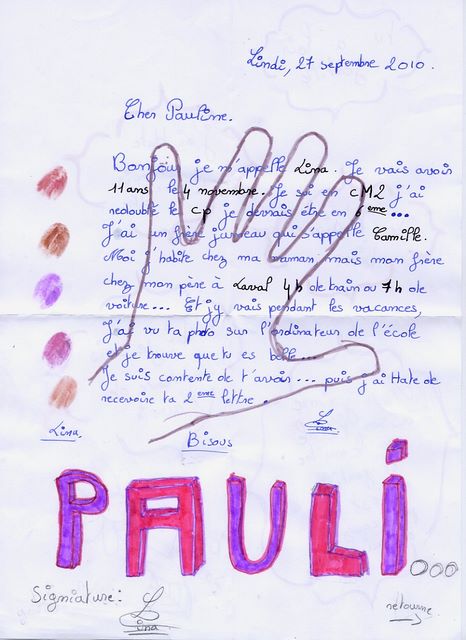 Lindi, 27 septembre 2010.
Cher Pauline.
Bonjour je m'appelle Lina. Je vais avoir
11 ans le 4 novembre. Je sui en CM2 j'ai
redoublé le CP je devrais être en 6 eme...
J'ai un frère jumeau qui s'appelle Camille.
Moi j'habite chez ma maman mais mon frère
chez mon père à Laval 4h de train ou 7h de
voiture... Et j'y vais pendant les vacances,
J'ai vu ta photo sur l'ordinateur de l'école
et je trouve que tu es belle...
Je suis contente de t'avoir... puis j'ai Hate de
recevoire ta 2 eme lettre.
Lina.
Bisous
Lina
PAULi...
Signiature: Lina
retourne